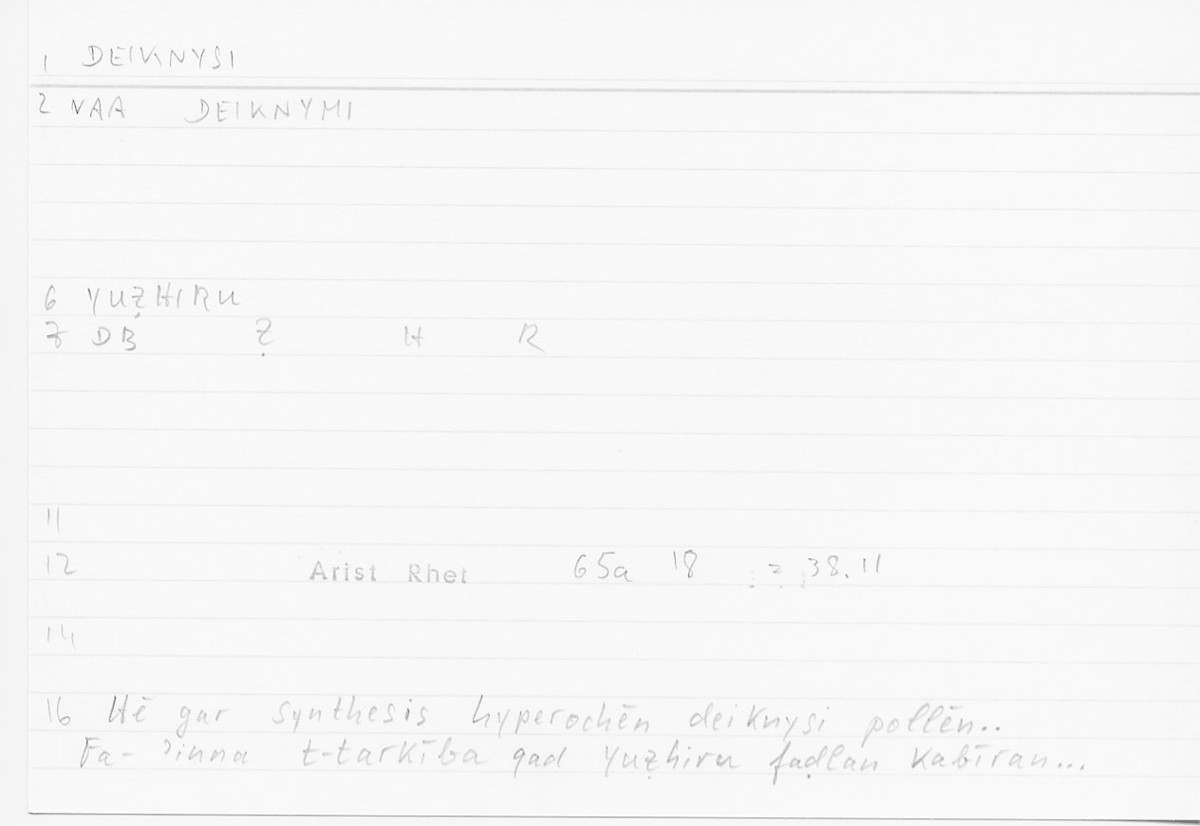 1 DEIKNYSI
2 VAA DEIKNYMI
6 YUẒHIRU
7 DB Ẓ H R
11
12 Arist Rhet 65a 18 = 38.11
14
16 Hē gar synthesis hyperochēn deiknysi pollēn..
Fa- ʾinna t-tarkība qad yuẓhiru faḍlan kabīran...